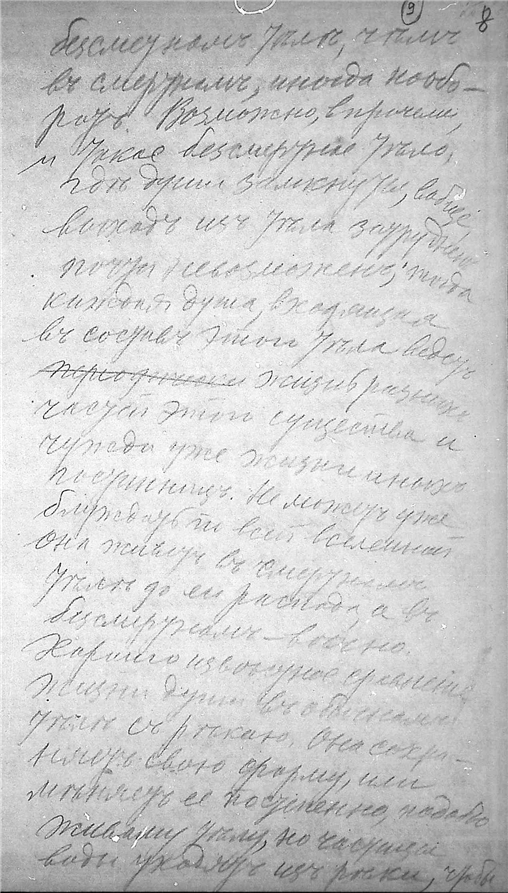 9 8
безсмертномъ тѣлѣ, чѣмъ
въ смертномъ, иногда наобо-
ротъ. Возможно, впрочемъ,
и такое безсмертное тѣло,
гдѣ души замкнуты,
выходъ изъ тѣла затрудненъ
почти невозможенъ; тогда
каждая душа, входящая
въ составъ этого тѣла ведетъ
периодически жизнь разныхъ
частей этого существа и
чужда уже жизни иныхъ
Не можетъ уже
блуждать по всей вселенной
Она живетъ въ смертномъ
тѣлѣ до его распада, а въ
безсмертномъ – вѣчно.
Хорошо извѣстное сравненіе
жизни души въ
тѣлѣ съ рѣкою. Она сохра-
няетъ свою форму, или
мѣняетъ ее постепенно, подобно
живому тѣлу, но частицы
воды уходятъ изъ рѣки, чтобы